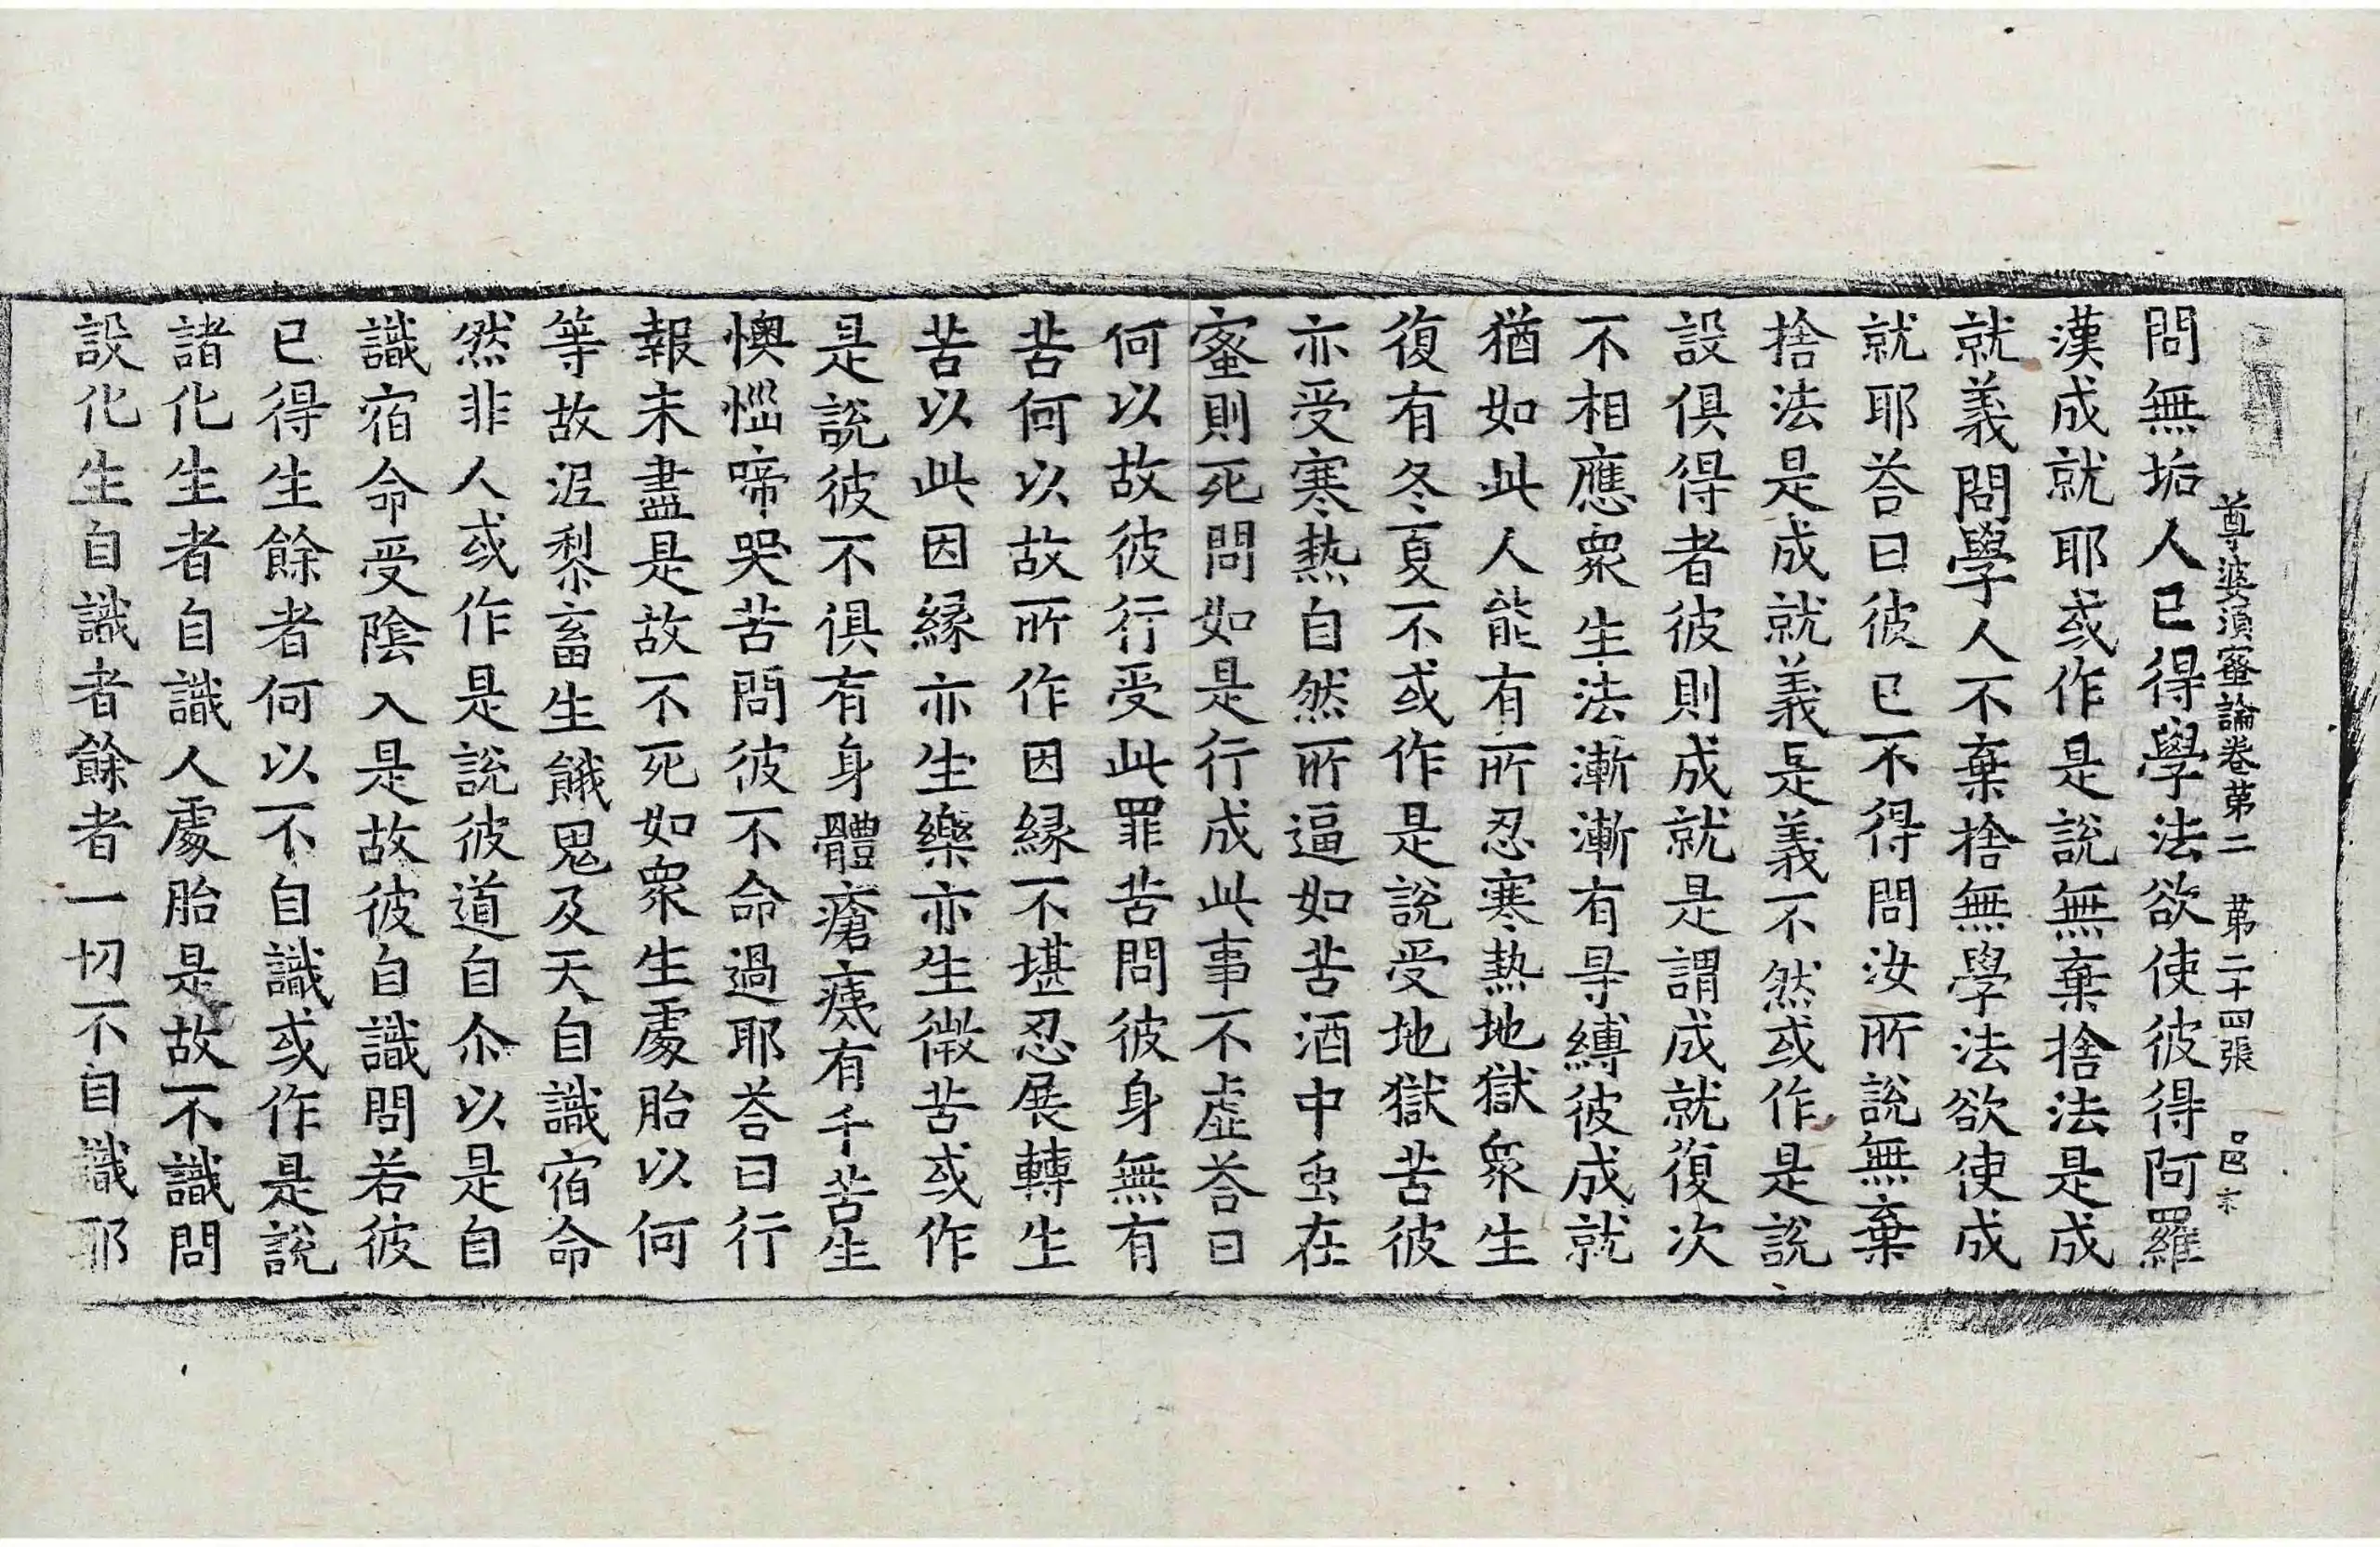 尊婆湏蜜論卷苐二 苐二十四張 邑
問無垢人已得學法欲使彼得阿羅
漢成就耶或作是說無棄捨法是成
就義問學人不棄捨無學法欲使成
就耶荅曰彼已不得問汝所說無棄
捨法是成就義是義不然或作是說
設俱得者彼則成就是謂成就復次
不相應衆生法漸漸有㝵縛彼成就
猶如此人能有所忍寒熱地獄衆生
復有冬夏不或作是說受地獄苦彼
亦受寒熱自然所逼如苦酒中虫在
蜜則死問如是行成此事不虛荅曰
何以故彼行受此罪苦問彼身無有
苦何以故所作因緣不堪忍展轉生
苦以此因緣亦生樂亦生微苦或作
是說彼不俱有身體瘡痍有千苦生
懊惱啼哭苦問彼不命過耶荅曰行
報未盡是故不死如衆生處胎以何
等故泥犁畜生餓鬼及天自識宿命
然非人或作是說彼道自尒以是自
識宿命受陰入是故彼自識問若彼
已得生餘者何以不自識或作是說
諸化生者自識人處胎是故不識問
設化生自識者餘者一切不自識耶